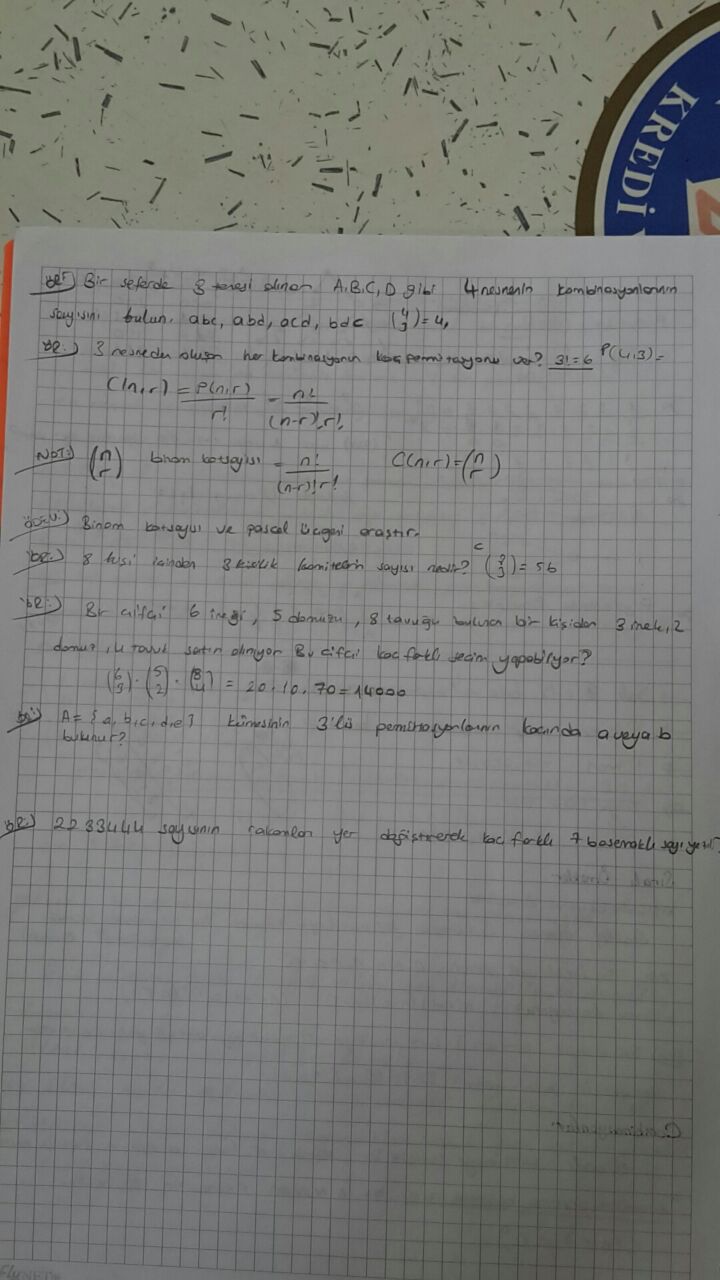 KREDİ
ÖR:) Bir seferde 3 tanesi alınan A,B,C,D gibi 4 nesnenin kombinasyonlarının
sayısını bulun. abc, abd, acd, bdc (4 3) = 4,
ÖR:) 3 nesneden oluşan her kombinasyonun kaç permütasyonu var? 3! = 6 P(4,3) =
C(n,r) = P(n,r) / r! = n! / (n-r)!.r!
NOT:) (n r) binom katsayısı = n! / (n-r)!r! C(n,r) = (n r)
Binom katsayısı ve pascal üçgeni araştır.
ÖR:) 8 kişi içinden 3 kişilik komitelerin sayısı nedir? C (8 3) = 56
ÖR:) Bir çiftçi 6 ineği, 5 domuzu, 8 tavuğu bulunan bir kişiden 3 inek, 2
domuz, 4 tavuk satın alınıyor Bu çiftçi kaç farklı seçim yapabiliyor?
(6 3) . (5 2) . (8 4) = 20 . 10 . 70 = 14000
ÖR:) A = {a, b, c, d, e} kümesinin 3'lü permütasyonlarının kaçında a veya b
bulunur?
ÖR:) 2233444 sayısının rakamları yer değiştirerek kaç farklı 7 basamaklı sayı